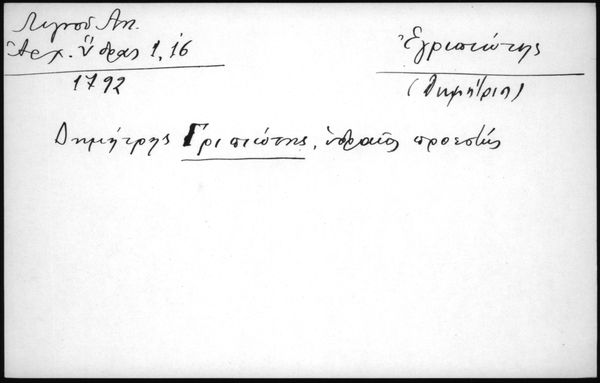 Λιγνοῦ Ἀπ.
Ἀρχ. Ὕδρας 1, 16
1792
Ἐγριπιώτης
(Δημήτρης)
Δημήτρης Γριπιώτης, ὑδραῖος προεστώς